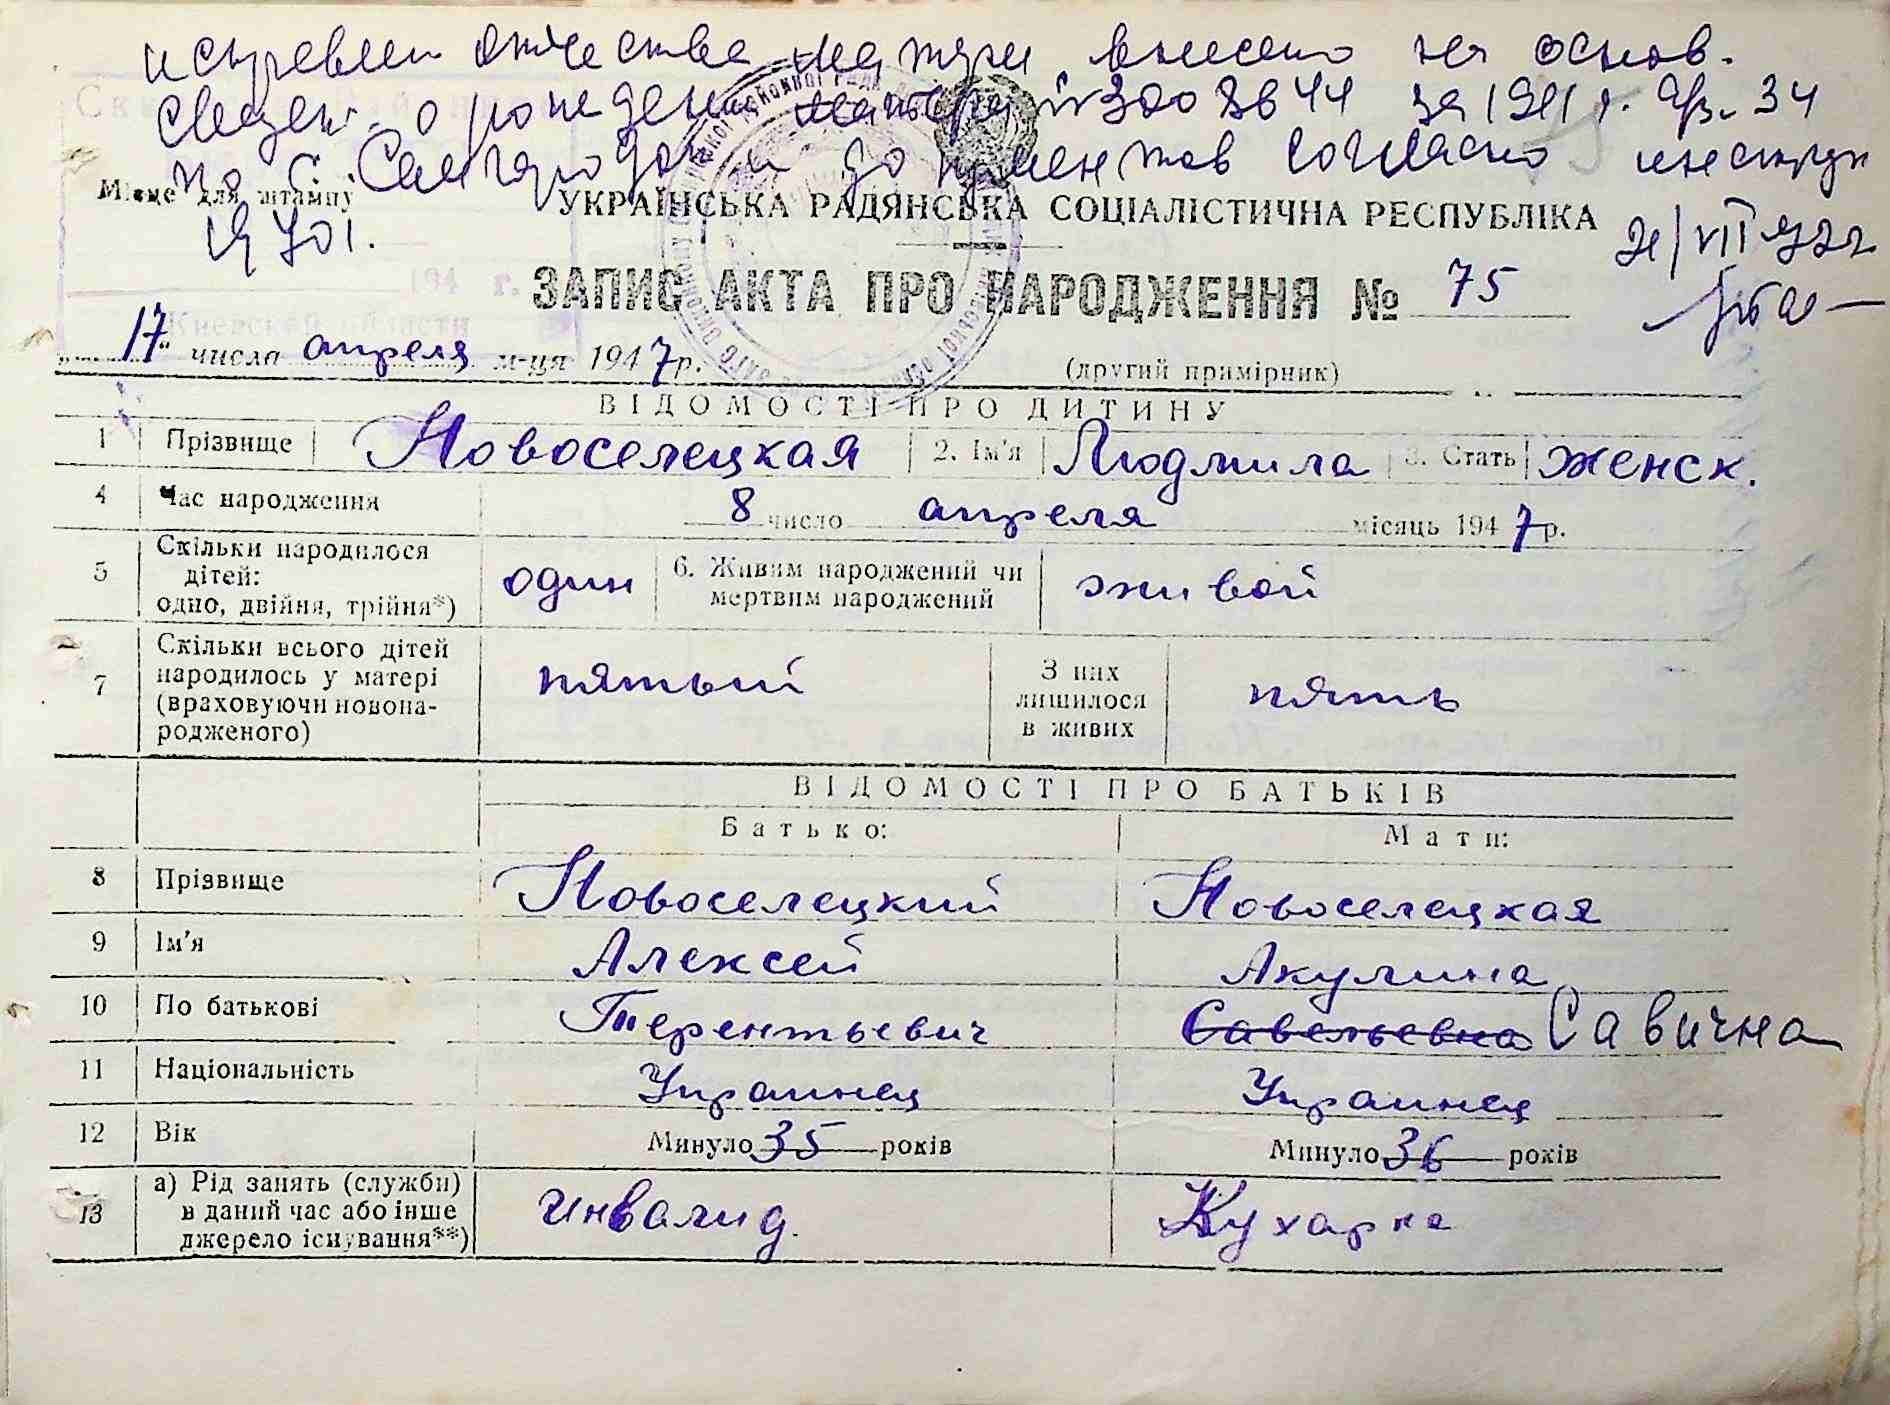 исправлен отчества матери внесено на основ.
свидет. о рождении матери № за 1911 г. 34
по с. Самгородок и документов согласно инструк
1970 г.
Місце для штампу
УКРАЇНСЬКА РАДЯНСЬКА СОЦІАЛІСТИЧНА РЕСПУБЛІКА
21/VII
194 г.
Киевской области
ЗАПИС АКТА ПРО НАРОДЖЕННЯ № 75
„17" числа апреля м-ця 1947 р.
(другий примірник)
ВІДОМОСТІ ПРО ДИТИНУ
1 Прізвище Новоселецкая 2. Ім'я Людмила 3. Стать женск.
4 Час народження 8 число апреля місяць 1947 р.
5 Скільки народилося
дітей:
одно, двійня, трійня*)
один
6. Живим народжений чи
мертвим народжений
живой
7 Скільки всього дітей
народилось у матері
(враховуючи новона-
родженого)
пятый
З них
лишилося
в живих
пять
ВІДОМОСТІ ПРО БАТЬКІВ
Батько: Мати:
8 Прізвище Новоселецкий Новоселецкая
9 Ім'я Алексей Акулина
10 По батькові Терентьевич Савельевна Савична
11 Національність Украинец Украинец
12 Вік Минуло 35 років Минуло 36 років
13 а) Рід занять (служби)
в даний час або інше
джерело існування**)
инвалид. Кухарка